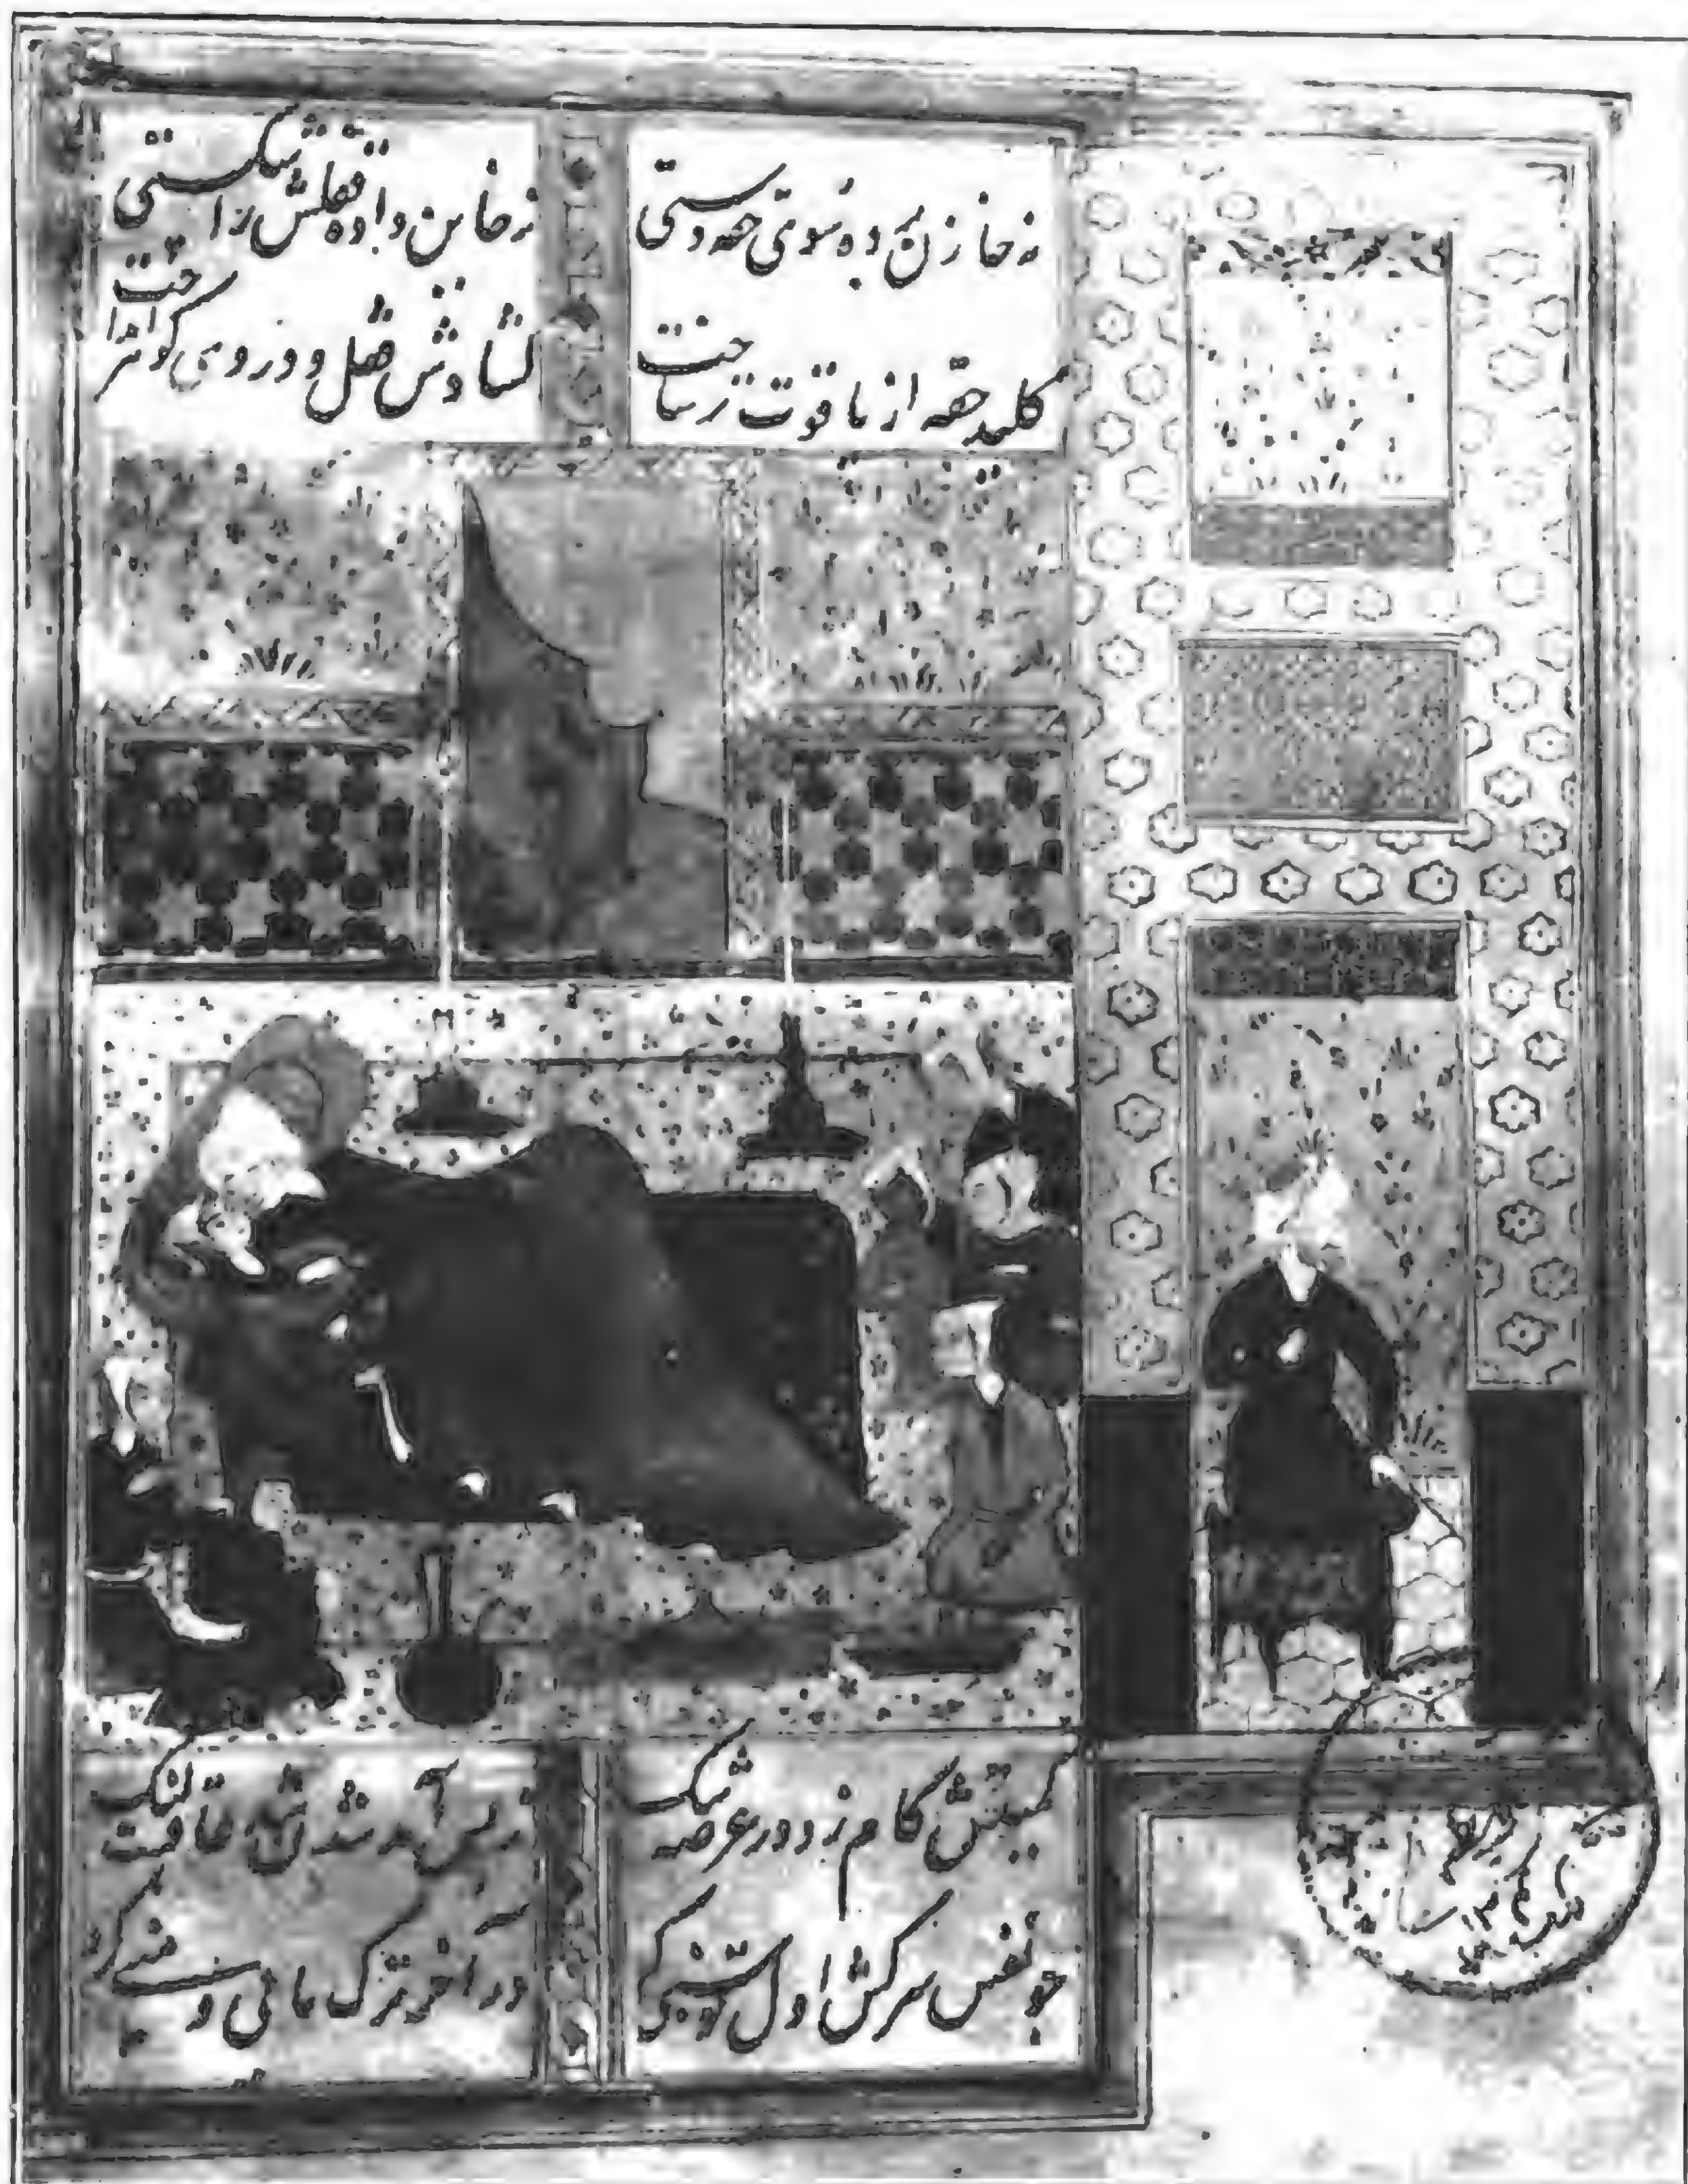 نه خازن برده سوی حقه دستی نه خاین داده قفلش را شکستی
کلید حقه از یاقوت تر ساخت گشادش قفل و در وی گوهر انداخت
کمیتش گام زد در عرصه تنگ ز بس آمد شدن شد عاقبت لنگ
چو نفس سرکش اول توسنی کرد در آخر ترک مایی و منی کرد